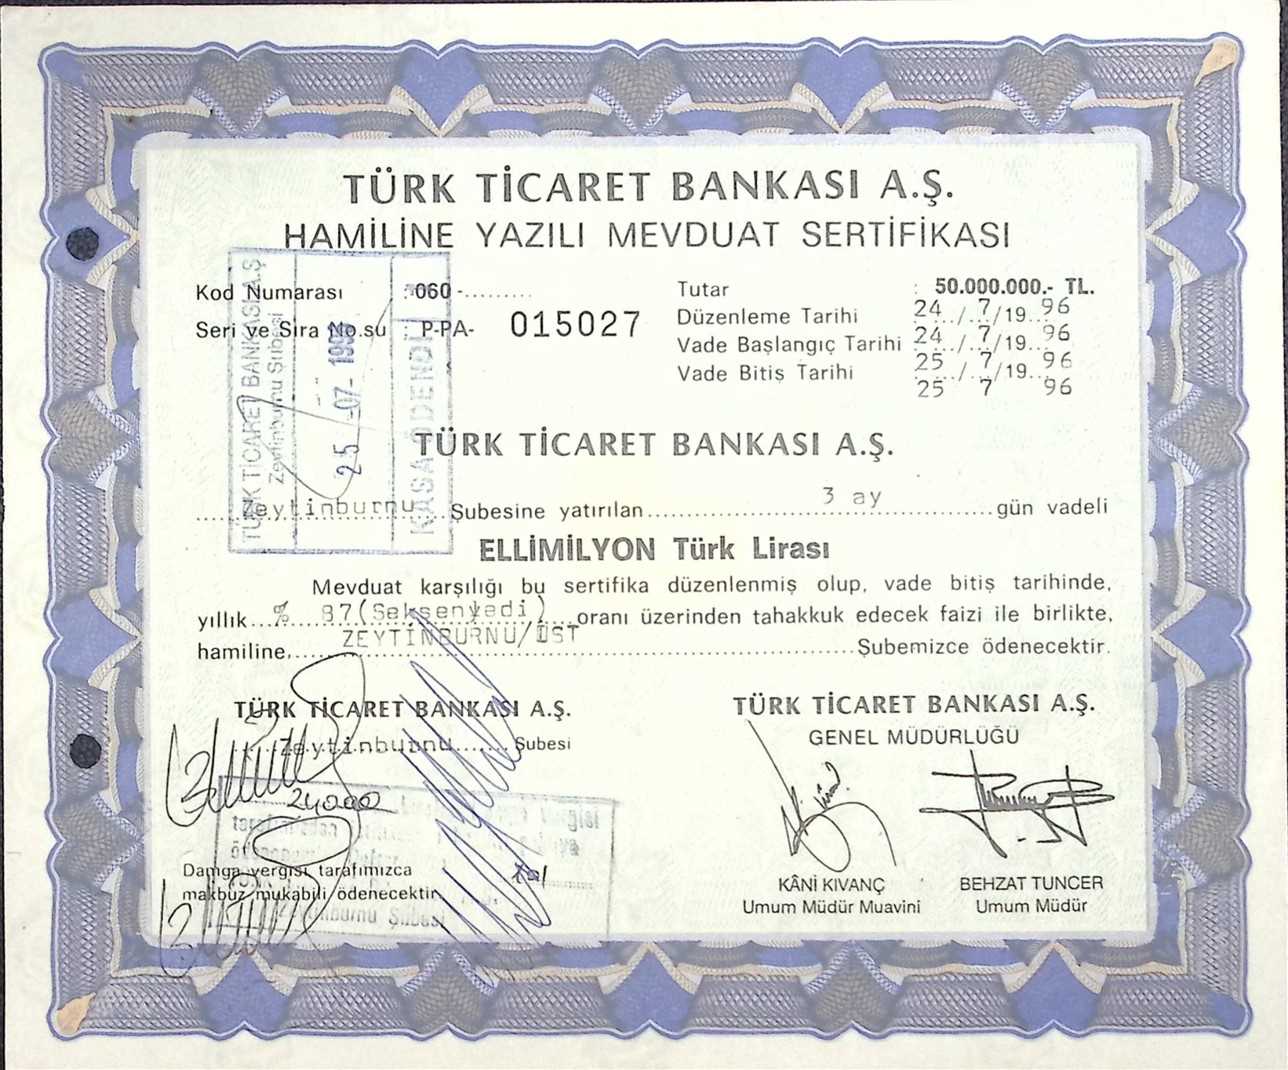 TÜRK TİCARET BANKASI A.Ş.
HAMİLİNE YAZILI MEVDUAT SERTİFİKASI
Kod Numarası : 060 -..........
Seri ve Sıra No.su : P-PA- 015027
Tutar : 50.000.000.- TL.
Düzenleme Tarihi 24 / 7 /19 96
Vade Başlangıç Tarihi 24 / 7 /19 96
Vade Bitiş Tarihi 25 / 7 /19 96
25 7 96
TÜRK TİCARET BANKASI A.Ş
Zeytinburnu Şubesi
25 -07- 1996
KASA ÖDENDİ
TÜRK TİCARET BANKASI A.Ş.
Zeytinburnu Şubesine yatırılan 3 ay gün vadeli
ELLİMİLYON Türk Lirası
Mevduat karşılığı bu sertifika düzenlenmiş olup, vade bitiş tarihinde,
yıllık % 87(Seksenyedi) oranı üzerinden tahakkuk edecek faizi ile birlikte,
hamiline ZEYTİNBURNU/İST Şubemizce ödenecektir.
TÜRK TİCARET BANKASI A.Ş.
Zeytinburnu Şubesi
24000
vergisi
tarafından
Damga vergisi tarafımızca
makbuz mukabili ödenecektir.
Zeytinburnu Şubesi
TÜRK TİCARET BANKASI A.Ş.
GENEL MÜDÜRLÜĞÜ
KÂNİ KIVANÇ
Umum Müdür Muavini
BEHZAT TUNCER
Umum Müdür